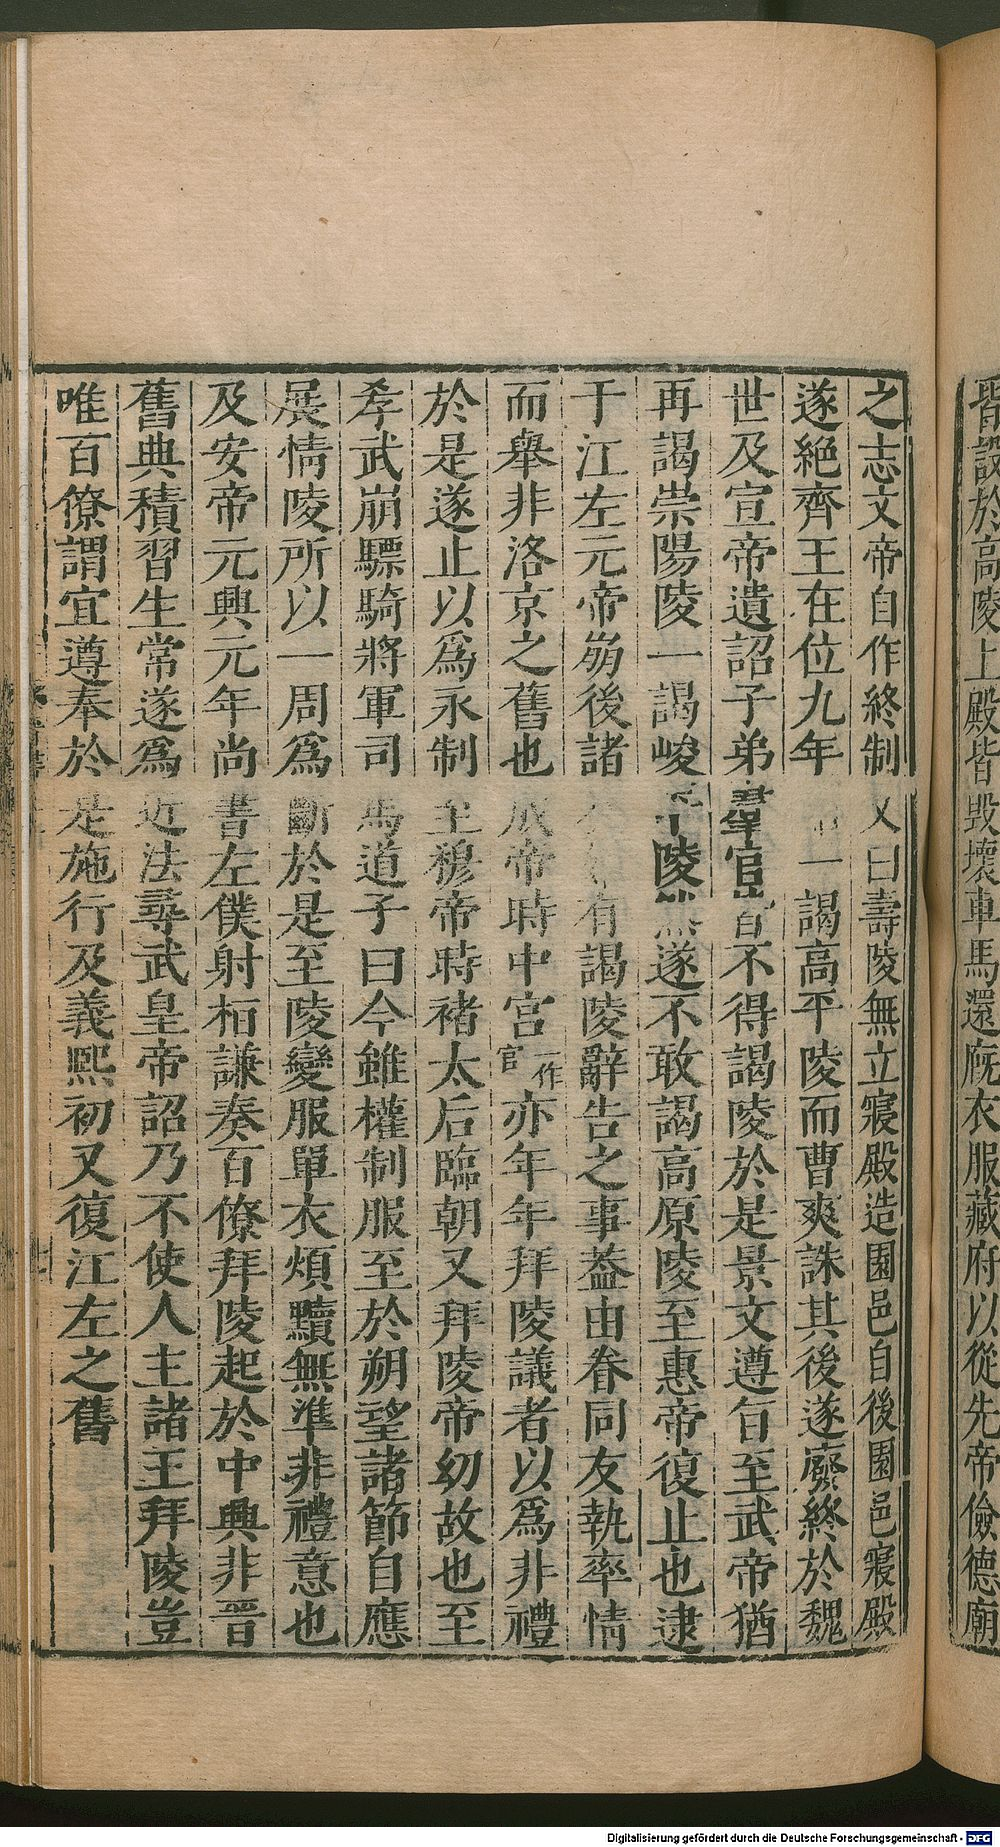 皆設於高陵上殿皆毀壞車馬還廐衣服藏府以從先帝儉德廟
之志文帝自作終制又曰壽陵無立寢殿造園邑自後園邑寢殿
遂絶齊王在位九年一謁高平陵而曹爽誅其後遂廢終於魏
世及宣帝遺詔子弟羣官皆不得謁陵於是景文遵旨至武帝猶
再謁崇陽陵一謁峻平陵然遂不敢謁高原陵至惠帝復止也逮
于江左元帝崩後諸有謁陵辭告之事葢由眷同友執率情
而舉非洛京之舊也成帝時中宫一作官亦年年拜陵議者以爲非禮
於是遂止以爲永制至穆帝時褚太后臨朝又拜陵帝幼故也至
孝武崩驃騎將軍司馬道子曰今雖權制服至於朔望諸節自應
展情陵所以一周爲斷於是至陵變服單衣煩黷無準非禮意也
及安帝元興元年尚書左僕射桓謙奏百僚拜陵起於中興非晉
舊典積習生常遂爲近法尋武皇帝詔乃不使人主諸王拜陵豈
唯百僚謂宜遵奉於是施行及義熙初又復江左之舊
Digitalisierung gefördert durch die Deutsche Forschungsgemeinschaft - DFG